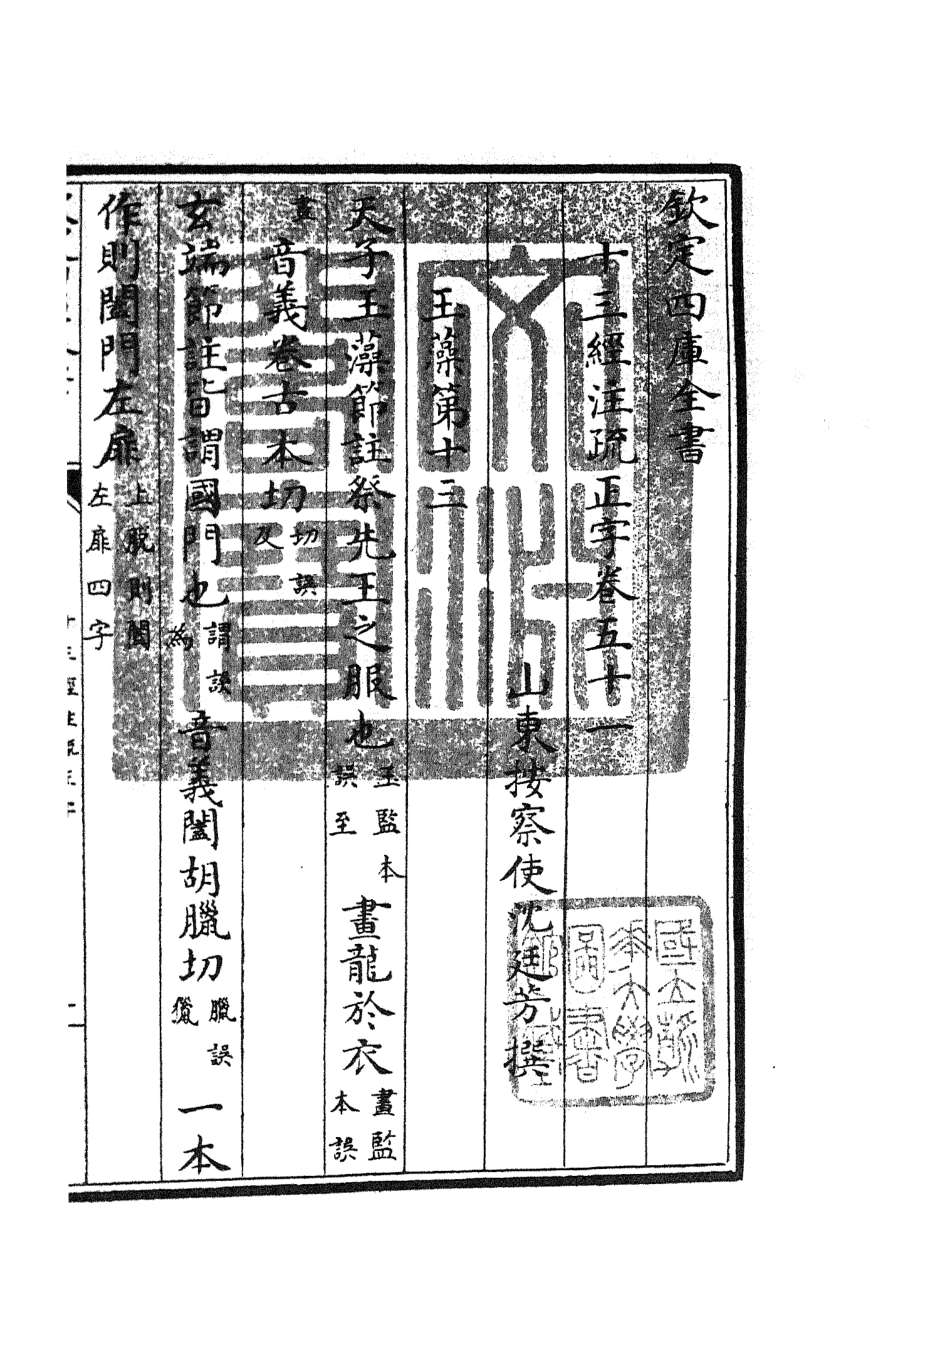 欽定四庫全書
十三經注疏正字卷五十一
山東按察使沈廷芳撰
玉藻第十三
天子玉藻節註祭先王之服也王監本誤至畫龍於衣畫監本誤
畫音義卷古本切切誤反
玄端節註皆謂國門也謂誤為音義闔胡臘切臘誤獵一本
作則闔門左扉上脱則闔左扉四字